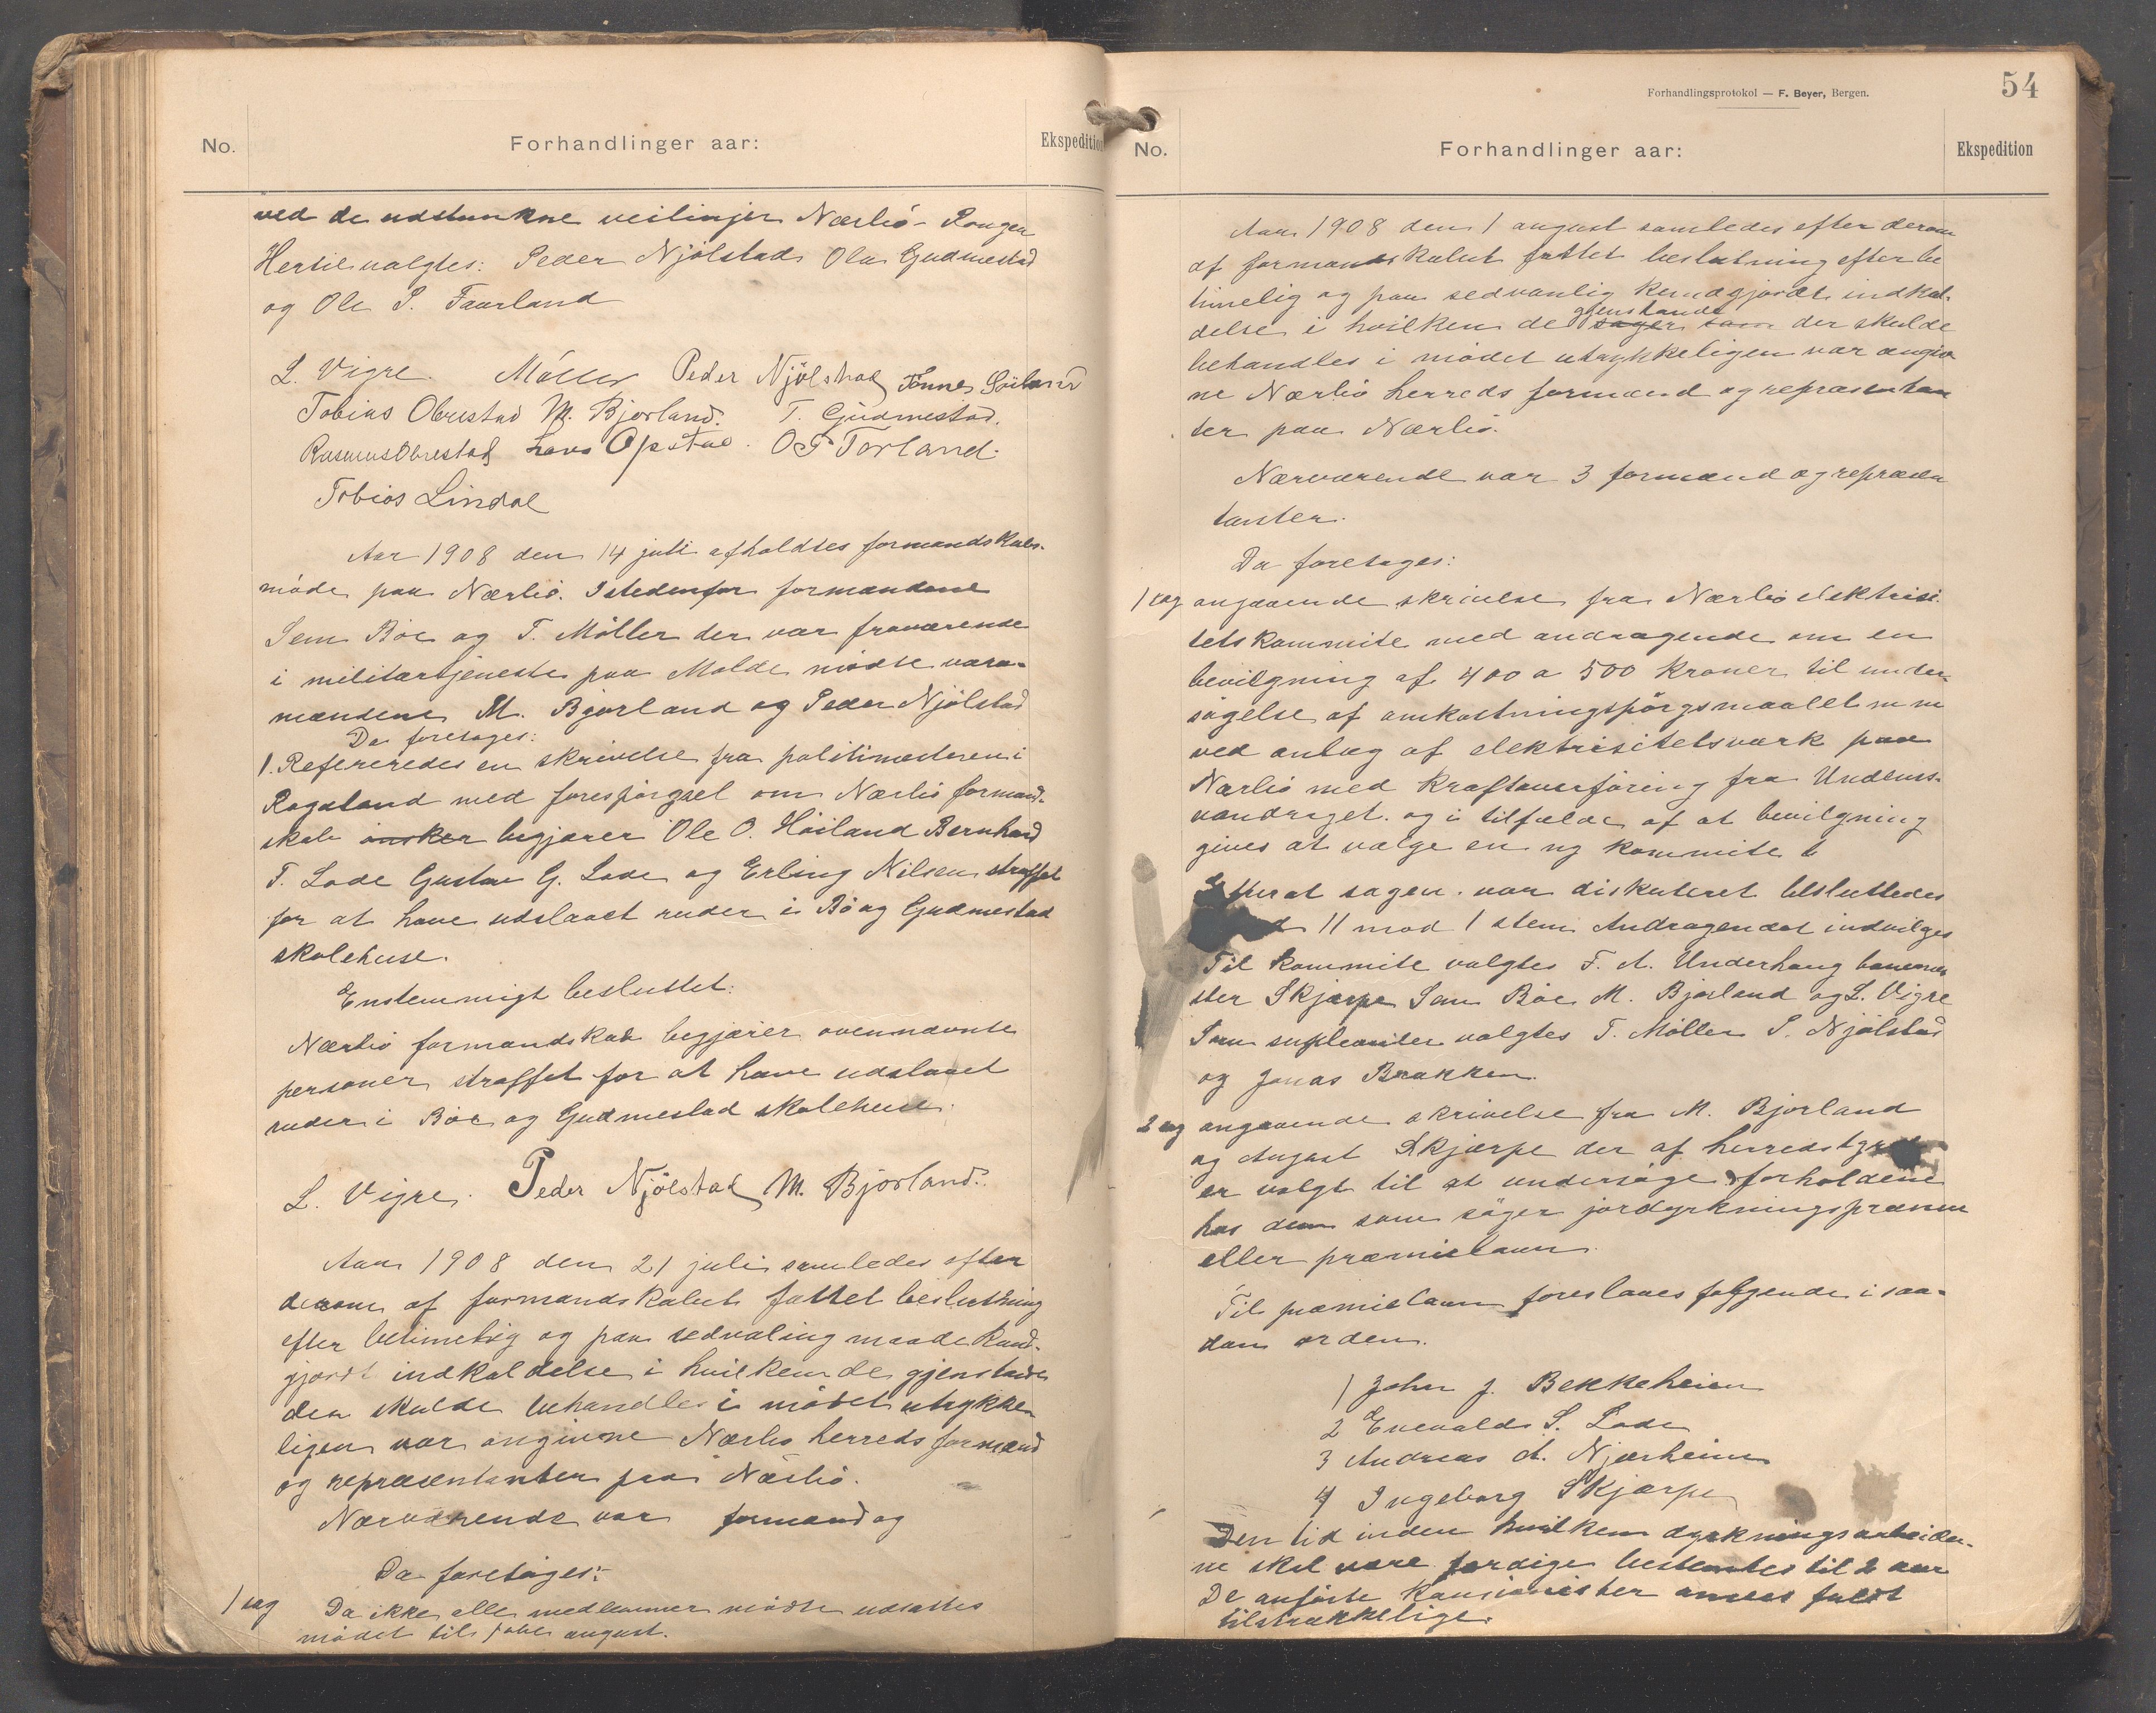 No.
Forhandlinger aar:
Ekspedition
ved de udstunkne veilinjer Nærbø - Rongen
Hertil valgtes: Peder Njølstad Ola Gudmestad
og Ole S. Faarland
L. Vigre. Møller Peder Njølstad Tønnes Söiland
Tobias Obrestad M. Bjorland. T. Gudmestad.
Rasmus Obrestad Lars Opstad. O S Torland.
Tobias Lindal
Aar 1908 den 14 juli afholdtes formandskabs-
møde paa Nærbø. Istedenfor formændene
Sem Böe og T. Møller der var fraværende
i militærtjeneste paa Molde mødte vara-
mændene M. Bjorland og Peder Njølstad
Da foretoges:
1. Refereredes en skrivelse fra politimesteren i
Rogaland med forespørgsel om Nærbø formand-
skab ønsker begjærer Ole O. Høiland Bernhard
T. Lode Gustav G. Lode og Erling Nilsen straffet
for at have udslaaet ruder i Bö og Gudmestad
skolehuse.
Enstemmigt besluttet:
Nærbø formandskab begjærer ovennævnte
personer straffet for at have udslaaet
ruder i Böe og Gudmestad skolehuse.
L. Vigre. Peder Njölstad M. Bjorland.
Aar 1908 den 21 juli samledes efter
derom af formandskabet fattet beslutning
efter betimelig og paa sedvaling maade kund-
gjordt indkaldelse i hvilken de gjenstande
der skulde behandles i mødet utrykke
ligen var angivne Nærbø herreds formænd
og repræsentanter paa Nærbø.
Nærværende var formænd og
Da foretoges:
1 sag Da ikke alle medlemmer mødte udsattes
mødet til 1ste august.
Forhandlingsprotokol — F. Beyer, Bergen.
54
No.
Forhandlinger aar:
Ekspedition
Aar 1908 den 1 august samledes efter derom
af formandskabet fattet beslutning efter be
timelig og paa sedvanlig kundgjordt indkal-
delse i hvilken de sager som gjenstande der skulde
behandles i mødet utrykkeligen var angiv
ne Nærbø herreds formænd og repræsentan
ter paa Nærbø.
Nærværende var 3 formænd og repræsen
tanter.
Da foretoges:
1 sag angaaende skrivelse fra Nærbø elektrisi-
tetskommite med andragende om en
bevilgning af 400 a 500 kroner til under-
søgelse af omkostningspörgsmaalet m m
ved anlæg af elektrisitetsværk paa
Nærbø med kraftoverføring fra Undems-
vandraget. og i tilfælde af at bevilgning
gives at vælge en ny kommite
Efterat sagen var diskuteret besluttedes
11 mod 1 stem. Andragendet indvilges
Til kommite valgtes F. A. Underhaug baneme
ster Skjærpe Sem Böe M. Bjorland og L. Vigre
Som supleanter valgtes T. Møller P. Njölstad
og Jonas Brakken.
2 sag angaaende skrivelse fra M. Bjorland
og August Skjærpe der af herredstyret
er valgt til at undersøge forholdene
hos dem som søger jordyrkningspræmie
eller præmielaan.
Til præmielaan foreslaaes følgende i saa-
dan orden.
1 John J. Bekkeheien
2 Enevald S. Lode
3 Andreas A. Njærheim
4 Ingeborg Skjærpe
Den tid inden hvilken dyrkningsarbeider-
ne skal være færdige bestemtes til 2 aar
De anførte kausionister ansees fuldt
tilstrækkelige.